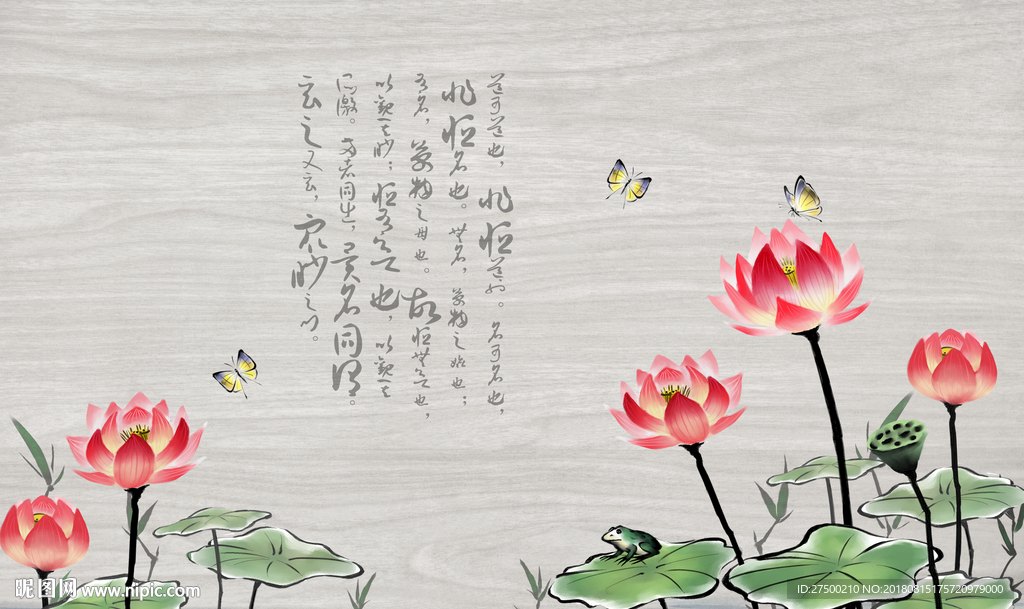 道可道也，非恒道也。名可名也，
非恒名也。無名，萬物之始也；
有名，萬物之母也。故恒無欲也，
以觀其眇；恒有欲也，以觀其
所徼。兩者同出，異名同謂。
玄之又玄，眾眇之門。
昵图网 www.nipic.com
ID:27500210 NO:20180815175720979000